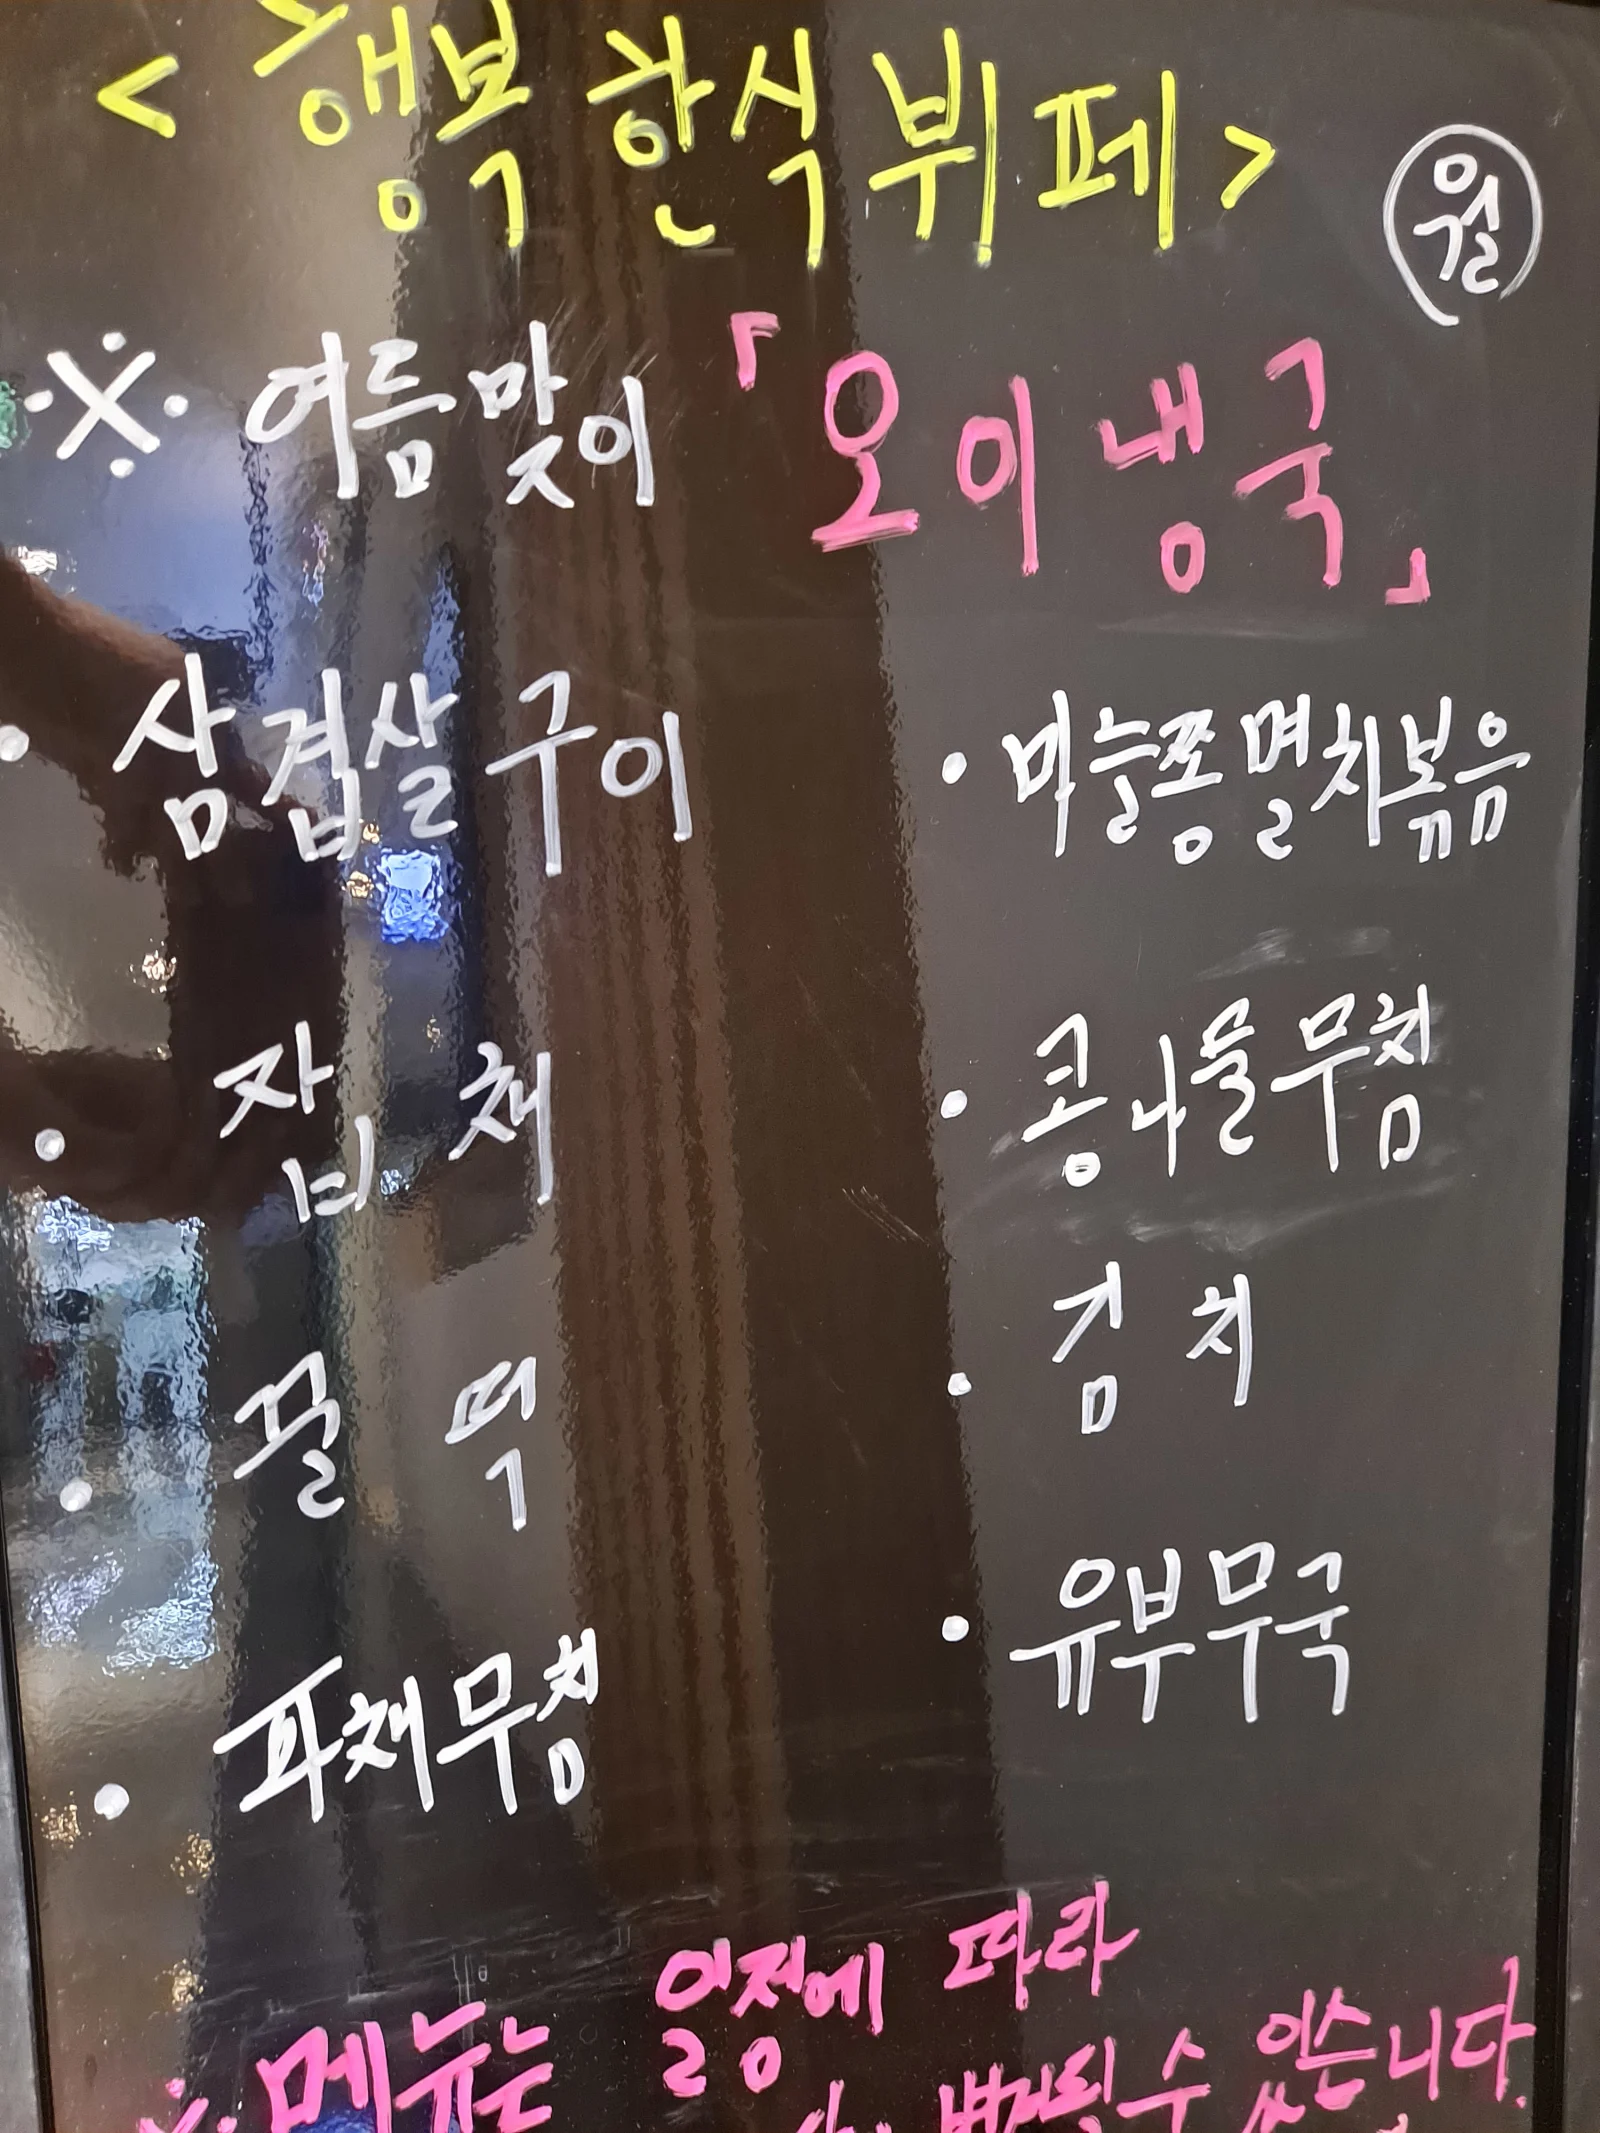 <행복 한식 뷔페> 월
※ 여름맞이 「오이냉국」
• 삼겹살 구이
• 잡채
• 꿀떡
• 파채무침
• 마늘쫑멸치볶음
• 콩나물무침
• 김치
• 유부무국
※ 메뉴는 일정에 따라
변경될 수 있습니다.